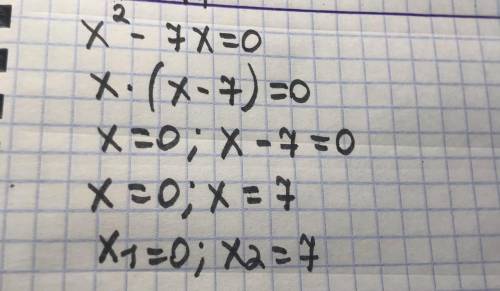 x² - 7x=0
x·(x-7)=0
x=0; x-7=0
x=0; x=7
x₁=0; x₂=7